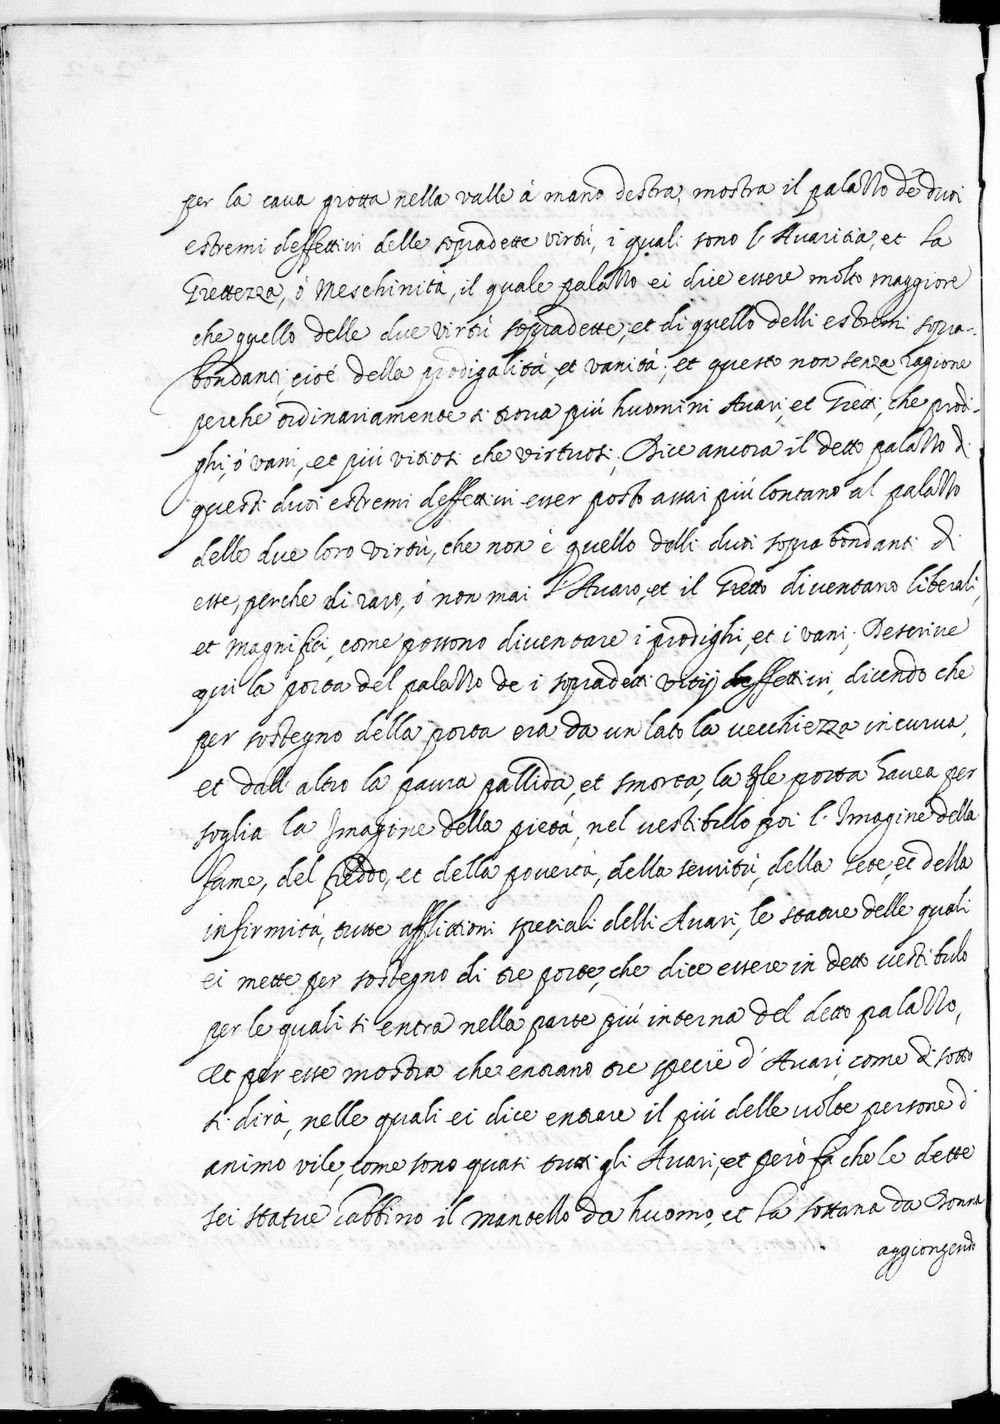 per la caua grotta nella valle à mano destra, mostra il palazzo de duoi
estremi deffettiui delle sopradette virtù, i quali sono l'Auaritia, et la
Grettezza, ò Meschinità, il quale palazzo ei dice essere molto maggiore
che quello delle due virtù sopradette, et di quello delli estremi sopra-
bondanti, cioé della prodigalità, et vanità; et questo non senza ragione
perche ordinariamente si troua più huomini Auari, et Gretti, che prodi-
ghi, ò vani, et più vitiosi che virtuosi; Dice ancora il detto palazzo di
questi duoi estremi deffettiui esser posto assai più lontano al palazzo
delle due loro virtù, che non è quello delli duoi sopra bondanti di
esse, perche di raro, ò non mai l'Auaro, et il Gretto diuentano liberali,
et Magnifici, come possono diuentare i prodighi, et i vani; Descriue
qui la porta del palazzo de i sopradetti vitij deffettiui, dicendo che
per sostegno della porta era da un lato la vecchiezza incurua,
et dall'altro la paura pallida, et smorta, la qle porta hauea per
soglia la Imagine della pietà, nel vestibulo poi l'Imagine della
fame, del freddo, et della pouertà, della seruitù, della sete, et della
infirmità, tutte afflittioni speciali delli Auari, le statue delle quali
ei mette per sostegno di tre porte, che dice essere in detto vestibulo
per le quali si entra nella parte più interna del detto palazzo,
Et per esse mostra che entrano tre specie d'Auari, come di sotto
si dirà, nelle quali ei dice entrare il più delle volte persone d'
animo vile, come sono quasi tutti gli Auari, et però fà che le dette
sei statue habbino il mantello da huomo, et la sottana da Donna
aggiongendo